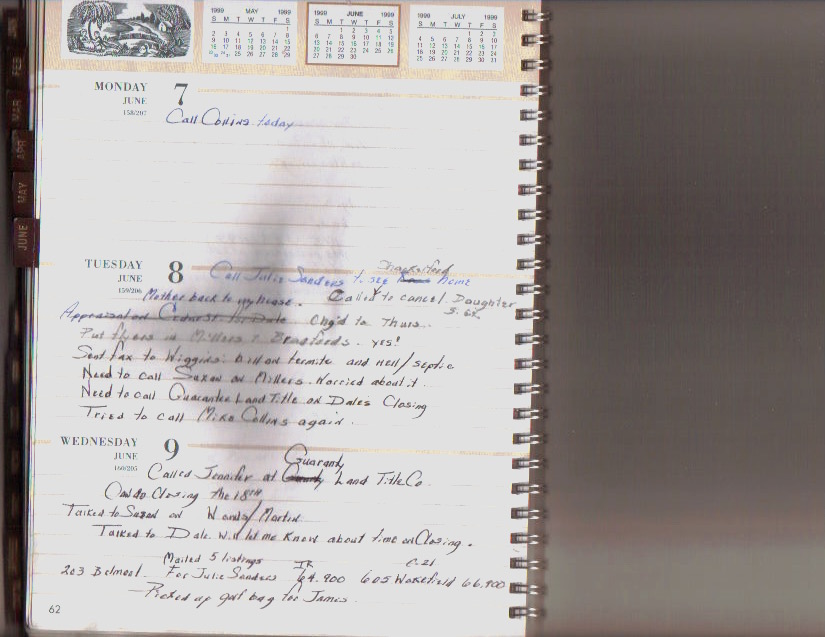 1999 MAY 1999
S M T W T F S
1
2 3 4 5 6 7 8
9 10 11 12 13 14 15
16 17 18 19 20 21 22
23 30 24 31 25 26 27 28 29
1999 JUNE 1999
S M T W T F S
1 2 3 4 5
6 7 8 9 10 11 12
13 14 15 16 17 18 19
20 21 22 23 24 25 26
27 28 29 30
1999 JULY 1999
S M T W T F S
1 2 3
4 5 6 7 8 9 10
11 12 13 14 15 16 17
18 19 20 21 22 23 24
25 26 27 28 29 30 31
FEB
MAR
APR
MAY
JUNE
MONDAY 7
JUNE
158/207
Call Collins today
TUESDAY 8
JUNE
159/206
Call Julie Sanders to see Home
Mother back to my house. Called to cancel. Daughter
Appraisal on Chg'd to Thurs.
Put flyers in Millers & Bradfords - yes!
Sent fax to Wiggins: Bill on termite and well/septic
Need to call Suzan on Millers. Worried about it.
Need to call Guarantee Land Title on Dales Closing
Tried to call Mike Collins again.
WEDNESDAY 9
JUNE
160/205
Guaranty
Called Jennifer at Land Title Co.
Can do Closing the 18TH
Talked to Suzan on Woods/Martin
Talked to Dale. Will let me know about time on Closing.
Mailed 5 listings C-21
203 Belmont. For Julie Sanders 64,900 605 Wakefield 66,900
- Picked up golf bag for James.
62